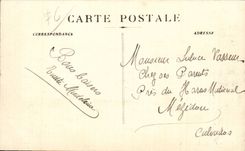 CARTE POSTALE
CORRESPONDANCE
ADRESSE
Bons baisers
Monsieur Lucien Vasseur
Chez ses Parents
Près du Haras National
Mézidon
Calvados